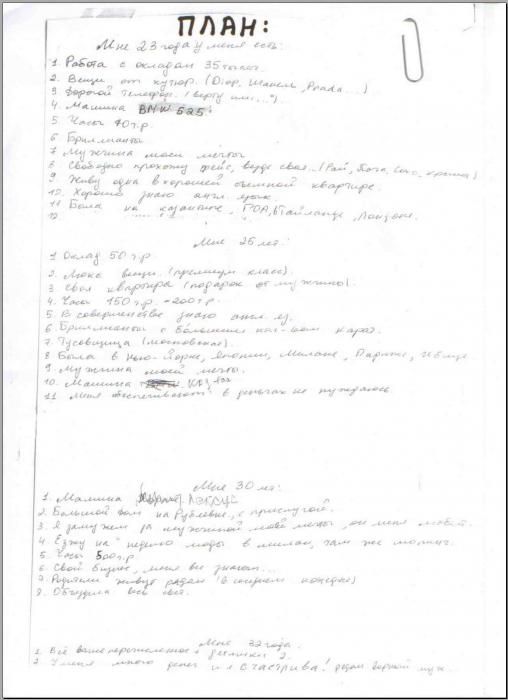 ПЛАН:
Мне 23 года у меня есть:
1 Работа с окладом 35 тысяч.
2. Вещи от кутюр. (Диор, Шанель, Prada....)
3 Дорогой телефон. (верту или...")
4. Машина BMW 525.
5. Часы 70 т.р.
6 Бриллианты
7 Мужчина моей мечты
8 Свободно прохожу фейс, везде своя.. (Рай,
9. Живу одна в хорошей съемной квартире.
10. Хорошо знаю англ. язык.
11 Была на казантипе, ГОА, Тайланде, Лондоне.
12
Мне 25 лет:
1 Оклад 50 т.р.
2. Люкс вещи. (премиум класс).
3 Своя квартира (подарок от мужчины).
4. Часы 150 т.р. - 200 т.р
5. В совершенстве знаю англ. яз.
6. Бриллианты с большим кол-вом карат.
7. Тусовщица (московская).
8 Была в Нью-Йорке, Японии, Милане, Париже,
9 Мужчина моей мечты.
10. Машина
11 Меня обеспечивают в деньгах не нуждаюсь
Мне 30 лет:
1. Машина
2. Большой дом на Рублевке, с прислугой.
3. Я замужем за мужчиной моей мечты, он меня любит.
4. Езжу на "неделю моды в милан, там же
5. Часы 500 т.р
6. Свой бизнес, меня все знают...
7. Родители живут рядом (в соседнем коттедже)
8. Объездила весь свет.
Мне 32 года.
1. Всё вышеперечисленное + детишки 2.
2 У меня много денег и я счастлива! рядом